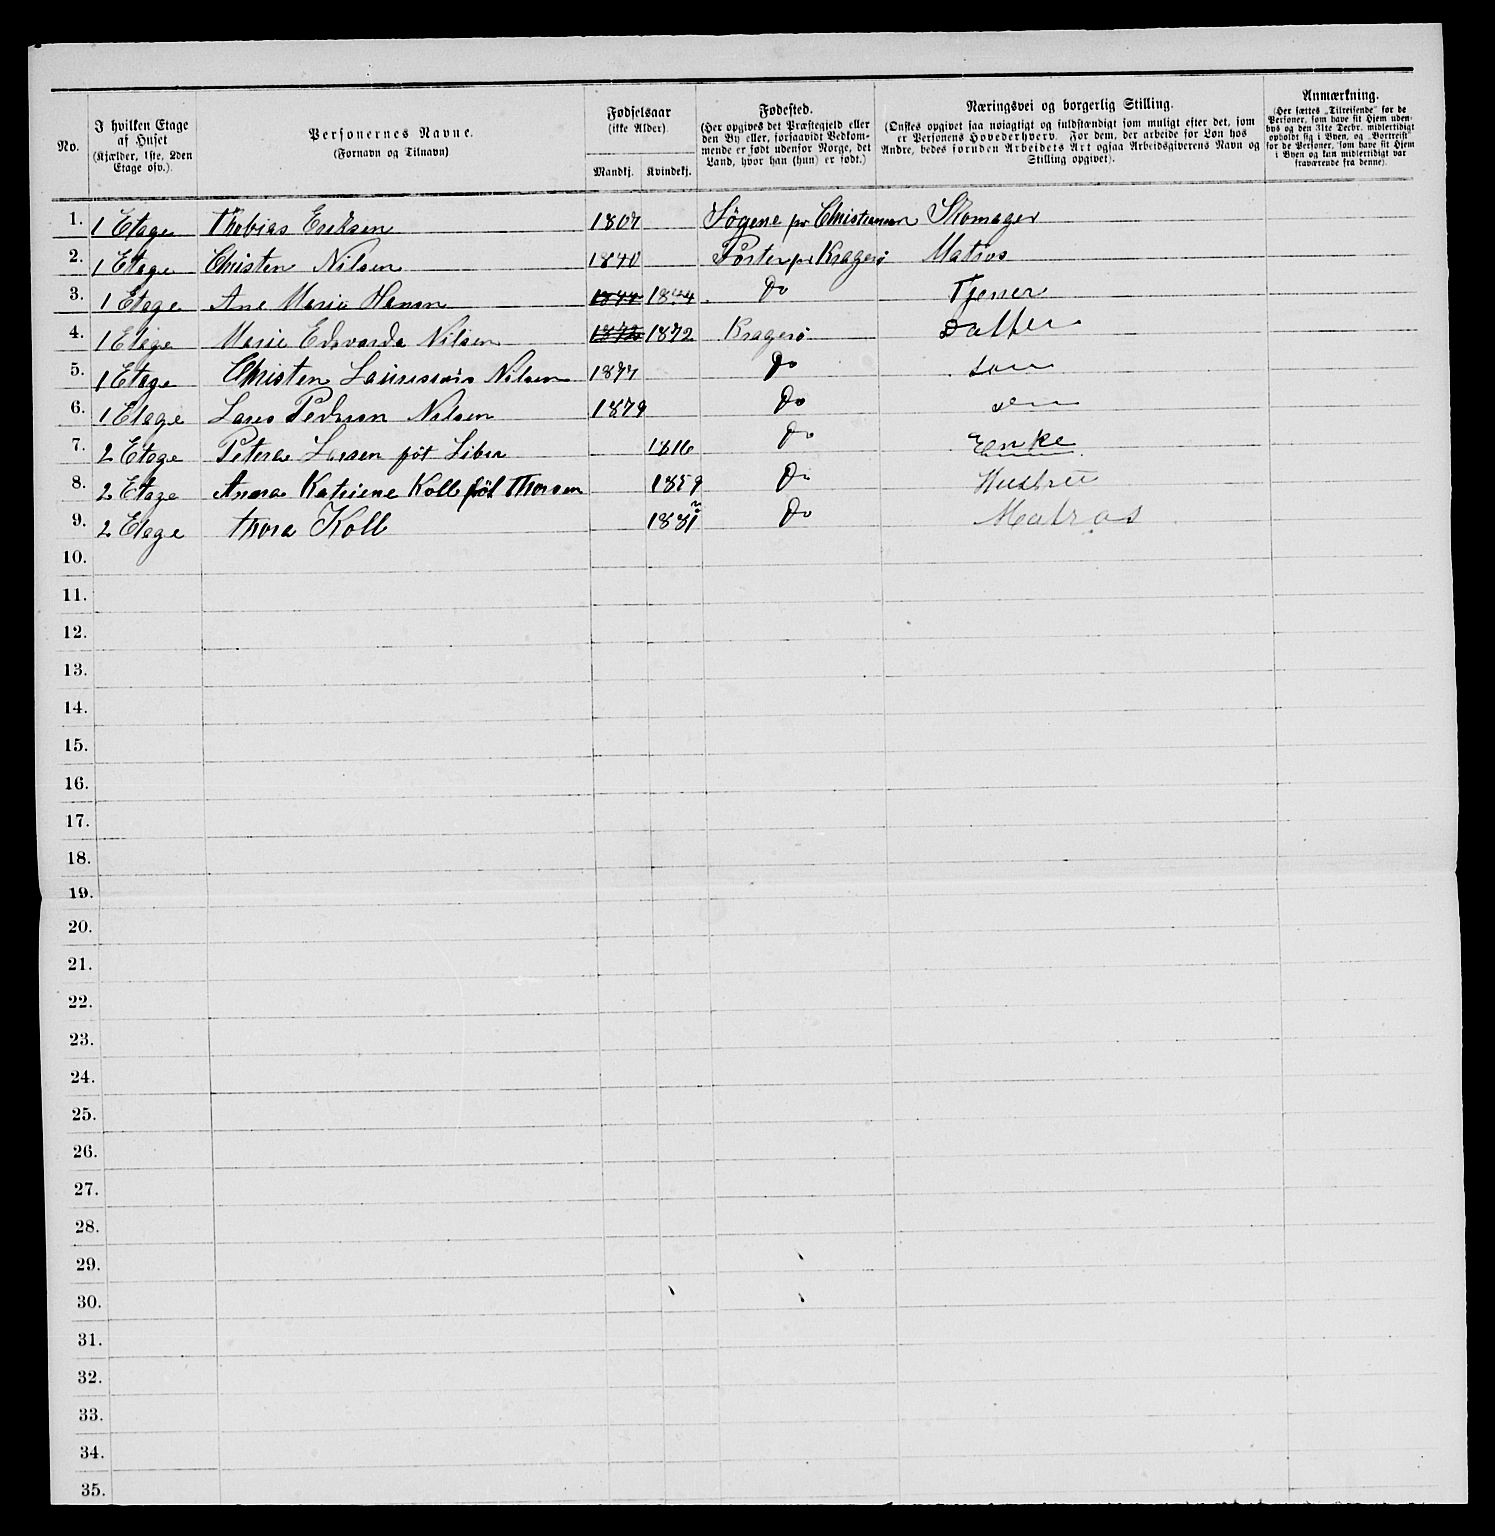 No.
I hvilken Etage af Huset (Kjælder, 1ste, 2den Etage osv.).
Personernes Navne. (Fornavn og Tilnavn)
Fødselsaar (ikke Alder).
Mandkj. Kvindekj.
Fødested. (Her opgives det Præstegjeld eller den By eller, forsaavidt Vedkommende er født udenfor Norge, det Land, hvor han (hun) er født.)
Næringsvei og borgerlig Stilling. (Ønskes opgivet saa nøiagtigt og fuldstændigt som muligt efter det, som er Personens Hovederhverv. For dem, der arbeide for Løn hos Andre, bedes foruden Arbeidets Art ogsaa Arbeidsgiverens Navn og Stilling opgivet).
Anmærkning. (Her sættes „Tilreisende“ for de Personer, som have sit Hjem udenbys og den 31te Decbr. midlertidigt opholdt sig i Byen, og „Bortreist“ for de Personer, som have sit Hjem i Byen og kun midlertidigt var fraværende fra denne).
1. 1 Etage Thobias Eriksen 1807 Søgene pr Christiansan Skomager
2. 1 Etage Christen Nilsen 1840 pr Kragerø Matros
3. 1 Etage Ane Marie Hansn 1844 1844 Do Tjener
4. 1 Etage Marie Edvarda Nilsen 1872 1872 Kragerø Datter
5. 1 Etage Christen Nilsen 1877 Do Søn
6. 1 Etage Lars Nilsen 1879 Do søn
7. 2 Etage Petera føt 1816 Do Enke
8. 2 Etage Anna Katriene Koll føt Thorsen 1859 Do Hustru
9. 2 Etage Thora Koll 1881 Do Matros
10.
11.
12.
13.
14.
15.
16.
17.
18.
19.
20.
21.
22.
23.
24.
25.
26.
27.
28.
29.
30.
31.
32.
33.
34.
35.